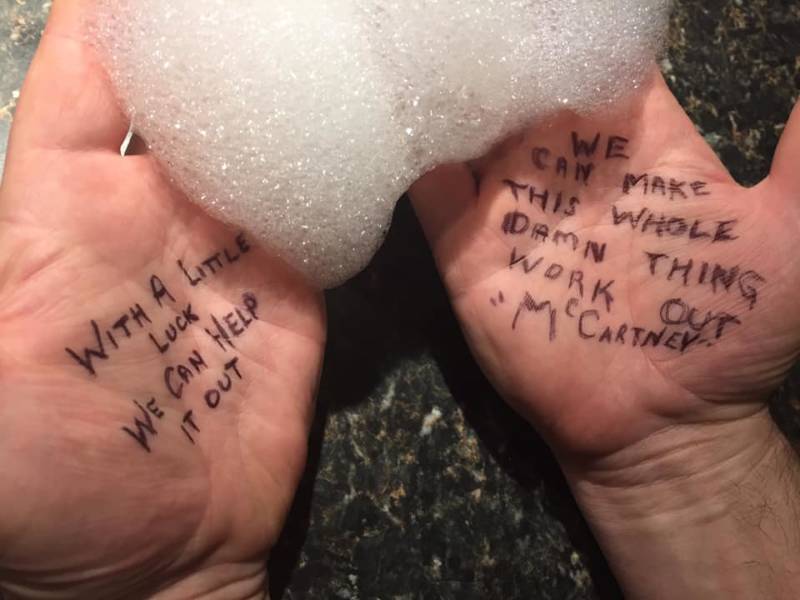 WITH A LITTLE
LUCK
WE CAN HELP
IT OUT
WE
CAN MAKE
THIS WHOLE
DAMN THING
WORK OUT
"McCARTNEY"